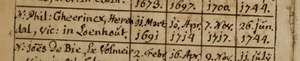 1673. 1697. 1700. 1744.
N: Phil: Gheerincx, Heren 11. Mart 10. Apr. 7. Nov. 26. Jun.
tal, vic: in Loenhout. 1691 1714 1717. 1744.
N: Joës de Bie, 2. Febr. 16. Apr. 9. Nov.